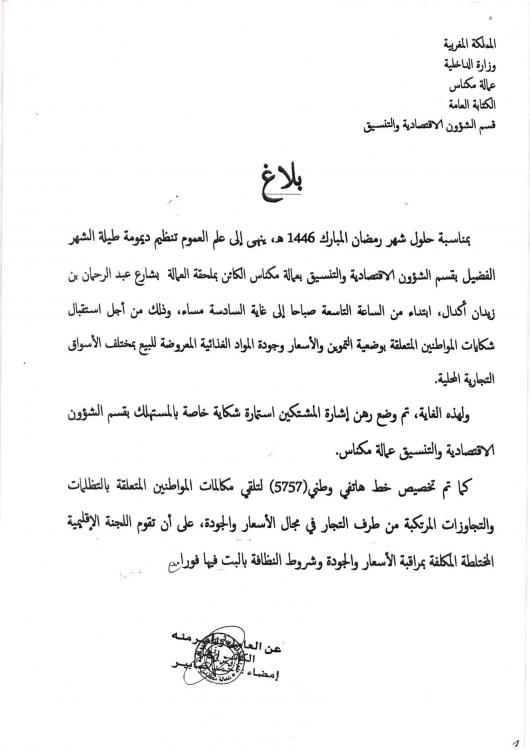 المملكة المغربية
وزارة الداخلية
عمالة مكناس
الكتابة العامة
قسم الشؤون الاقتصادية والتنسيق
بلاغ
بمناسبة حلول شهر رمضان المبارك 1446 هـ، ينهى إلى علم العموم تنظيم ديمومة طيلة الشهر
الفضيل بقسم الشؤون الاقتصادية والتنسيق بعمالة مكناس الكائن بملحقة العمالة بشارع عبد الرحمان بن
زيدان أكدال، ابتداء من الساعة التاسعة صباحا إلى غاية السادسة مساء، وذلك من أجل استقبال
شكايات المواطنين المتعلقة بوضعية التموين والأسعار وجودة المواد الغذائية المعروضة للبيع بمختلف الأسواق
التجارية المحلية.
ولهذه الغاية، تم وضع رهن إشارة المشتكين استمارة شكاية خاصة بالمستهلك بقسم الشؤون
الاقتصادية والتنسيق عمالة مكناس.
كما تم تخصيص خط هاتفي وطني(5757) لتلقي مكالمات المواطنين المتعلقة بالتظلمات
والتجاوزات المرتكبة من طرف التجار في مجال الأسعار والجودة، على أن تقوم اللجنة الإقليمية
المختلطة المكلفة بمراقبة الأسعار والجودة وشروط النظافة بالبت فيها فورا.
عن العامل وبأمر منه
الكاتب
إمضاء